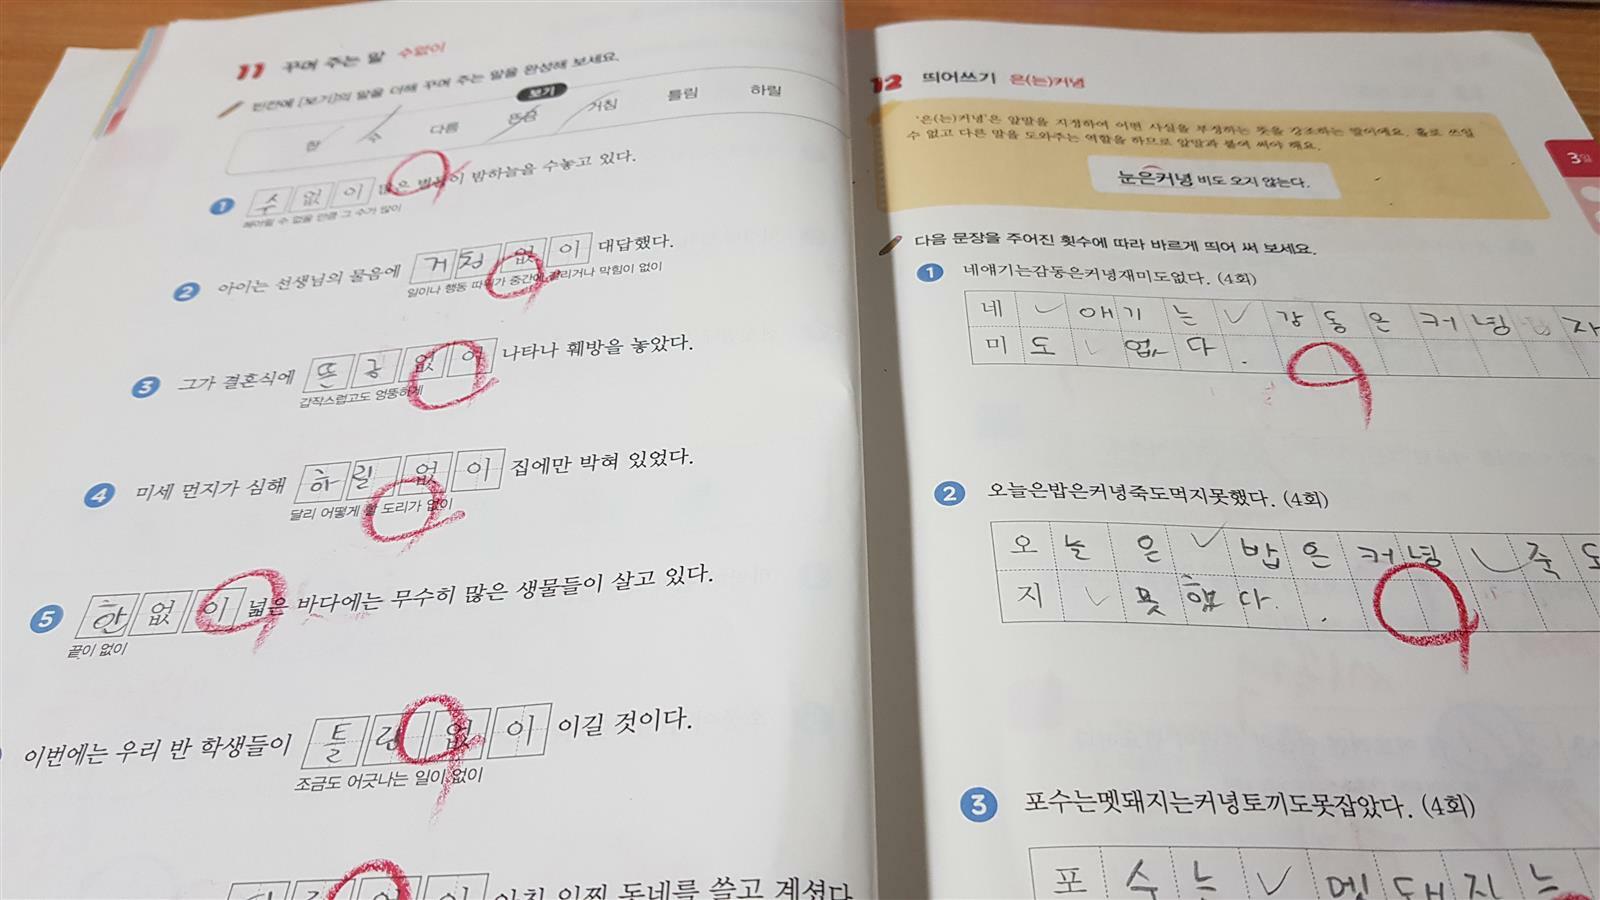 11 꾸며 주는 말 수없이
빈칸에 [보기]의 말을 더해 꾸며 주는 말을 완성해 보세요.
보기
한 수 다름 뜬금 거침 틀림 하릴
1 수없이 많은 별들이 밤하늘을 수놓고 있다.
헤아릴 수 없을 만큼 그 수가 많이
2 아이는 선생님의 물음에 거침없이 대답했다.
일이나 행동 따위가 중간에 걸리거나 막힘이 없이
3 그가 결혼식에 뜬금없이 나타나 훼방을 놓았다.
갑작스럽고도 엉뚱하게
4 미세 먼지가 심해 하릴없이 집에만 박혀 있었다.
달리 어떻게 할 도리가 없이
5 한없이 넓은 바다에는 무수히 많은 생물들이 살고 있다.
끝이 없이
이번에는 우리 반 학생들이 틀림없이 이길 것이다.
조금도 어긋나는 일이 없이
아침 일찍 동네를 쓸고 계셨다.
12 띄어쓰기 은(는)커녕
'은(는)커녕'은 앞말을 지정하여 어떤 사실을 부정하는 뜻을 강조하는 말이에요. 홀로 쓰일
수 없고 다른 말을 도와주는 역할을 하므로 앞말과 붙여 써야 해요.
눈은커녕 비도 오지 않는다.
3일
다음 문장을 주어진 횟수에 따라 바르게 띄어 써 보세요.
1 네얘기는감동은커녕재미도없다. (4회)
네 ∨ 얘기는 ∨ 감동은커녕 재
미도 ∨ 없다.
2 오늘은밥은커녕죽도먹지못했다. (4회)
오늘은 ∨ 밥은커녕 ∨ 죽도
지 ∨ 못했다.
3 포수는멧돼지는커녕토끼도못잡았다. (4회)
포수는 ∨ 멧돼지는